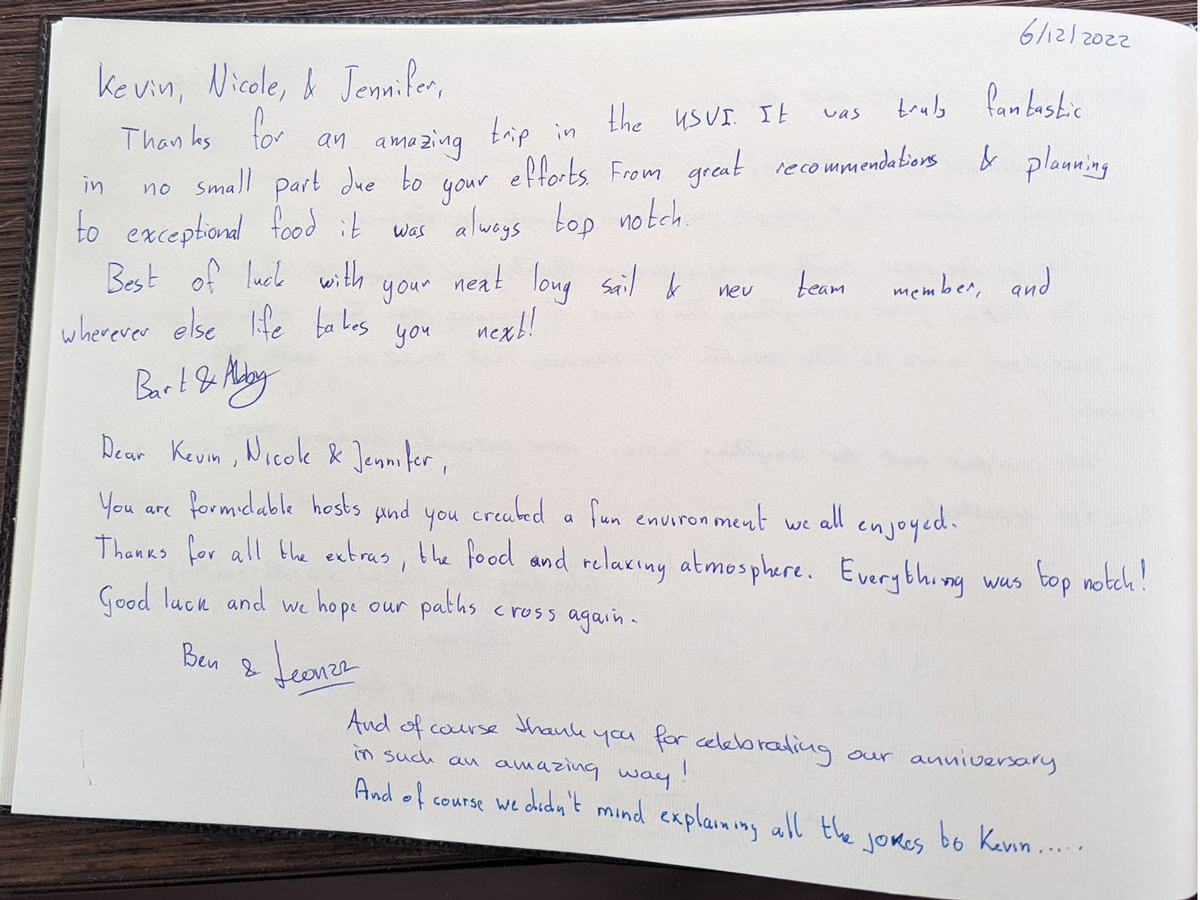 6/12/2022
Kevin, Nicole, & Jennifer,
Thanks for an amazing trip in the USVI. It was truly fantastic
in no small part due to your efforts. From great recommendations & planning
to exceptional food it was always top notch.
Best of luck with your next long sail & new team member, and
wherever else life takes you next!
Bart & Abby
Dear Kevin, Nicole & Jennifer,
You are formidable hosts and you created a fun environment we all enjoyed.
Thanks for all the extras, the food and relaxing atmosphere. Everything was top notch!
Good luck and we hope our paths cross again.
Ben &
And of course thank you for celebrating our anniversary
in such an amazing way!
And of course we didn't mind explaining all the jokes to Kevin.....